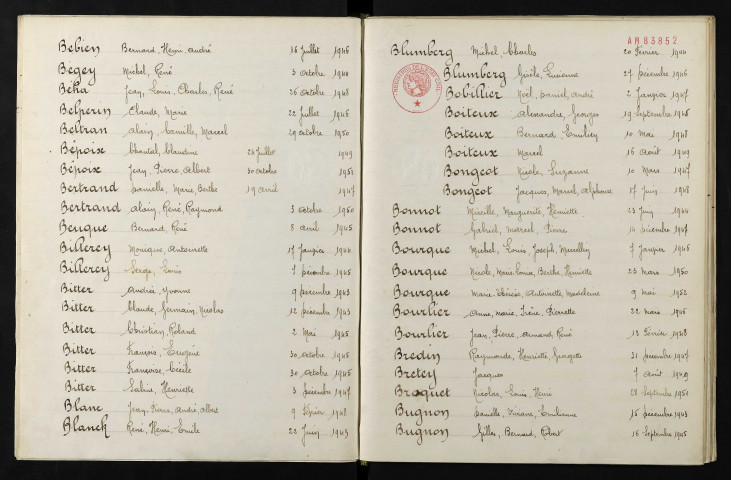 Bebien Bernard, Henri, André 16 Juillet 1946
Begey Michel, René 3 Octobre 1948
Beha Jean, Louis, Charles, René 26 Octobre 1948
Belperin Claude, Marie 22 Juillet 1946
Beltran Alain, Camille, Marcel 29 Octobre 1950
Bépoix Chantal, Claudine 26 Juillet 1949
Bépoix Jean, Pierre, Albert 30 Octobre 1951
Bertrand Danielle, Marie, Berthe 19 Avril 1947
Bertrand Alain, René, Raymond 3 Octobre 1950
Beuque Bernard, René 8 Avril 1945
Billerey Monique, Antoinette 17 Janvier 1944
Billerey Serge, Louis 7 Décembre 1945
Bitter Andrée, Yvonne 9 Décembre 1943
Bitter Claude, Germain, Nicolas 12 Décembre 1943
Bitter Christian, Roland 2 Mai 1945
Bitter François, Eugène 30 Octobre 1945
Bitter Françoise, Cécile 30 Octobre 1945
Bitter Sabine, Henriette 3 Décembre 1947
Blanc Jean, Pierre, André, Albert 9 Février 1948
Blanck René, Henri, Emile 22 Juin 1943
AM 83852
Blumberg Michel, Charles 20 Février 1944
Blumberg Gisèle, Lucienne 27 Décembre 1946
Bobillier Noël, Daniel, André 2 Janvier 1947
Boiteux Alexandre, Georges 19 Septembre 1946
Boiteux Bernard, Emilien 10 Mai 1948
Boiteux Marcel 16 Août 1949
Bongeot Nicole, Suzanne 10 Mars 1947
Bongeot Jacques, Marcel, Alphonse 17 Juin 1948
Bonnot Mireille, Marguerite, Henriette 23 Juin 1944
Bonnot Gabriel, Marcel, Pierre 14 Décembre 1947
Bourque Michel, Louis, Joseph, Marcellin 7 Janvier 1946
Bourque Nicole, Marie-Louise, Berthe, Henriette 23 Mars 1950
Bourque Marie-Thérèse, Antoinette, Madeleine 9 Mai 1952
Bourlier Anne, Marie, Irène, Pierrette 22 Mars 1946
Bourlier Jean, Pierre, Armand, René 13 Février 1948
Bredin Raymonde, Henriette, Georgette 31 Décembre 1947
Bretey Jacques 7 Août 1949
Broquet Nicolas, Louis, Henri 28 Septembre 1951
Bugnon Danielle, Viviane, Emilienne 15 Décembre 1943
Bugnon Gilles, Bernard, Robert 16 Septembre 1945